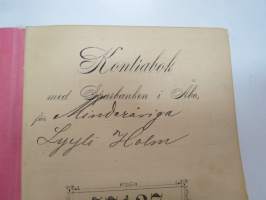 Kontrabok
med Sparbanken i Åbo,
för Minderåriga
Lyyli Holm